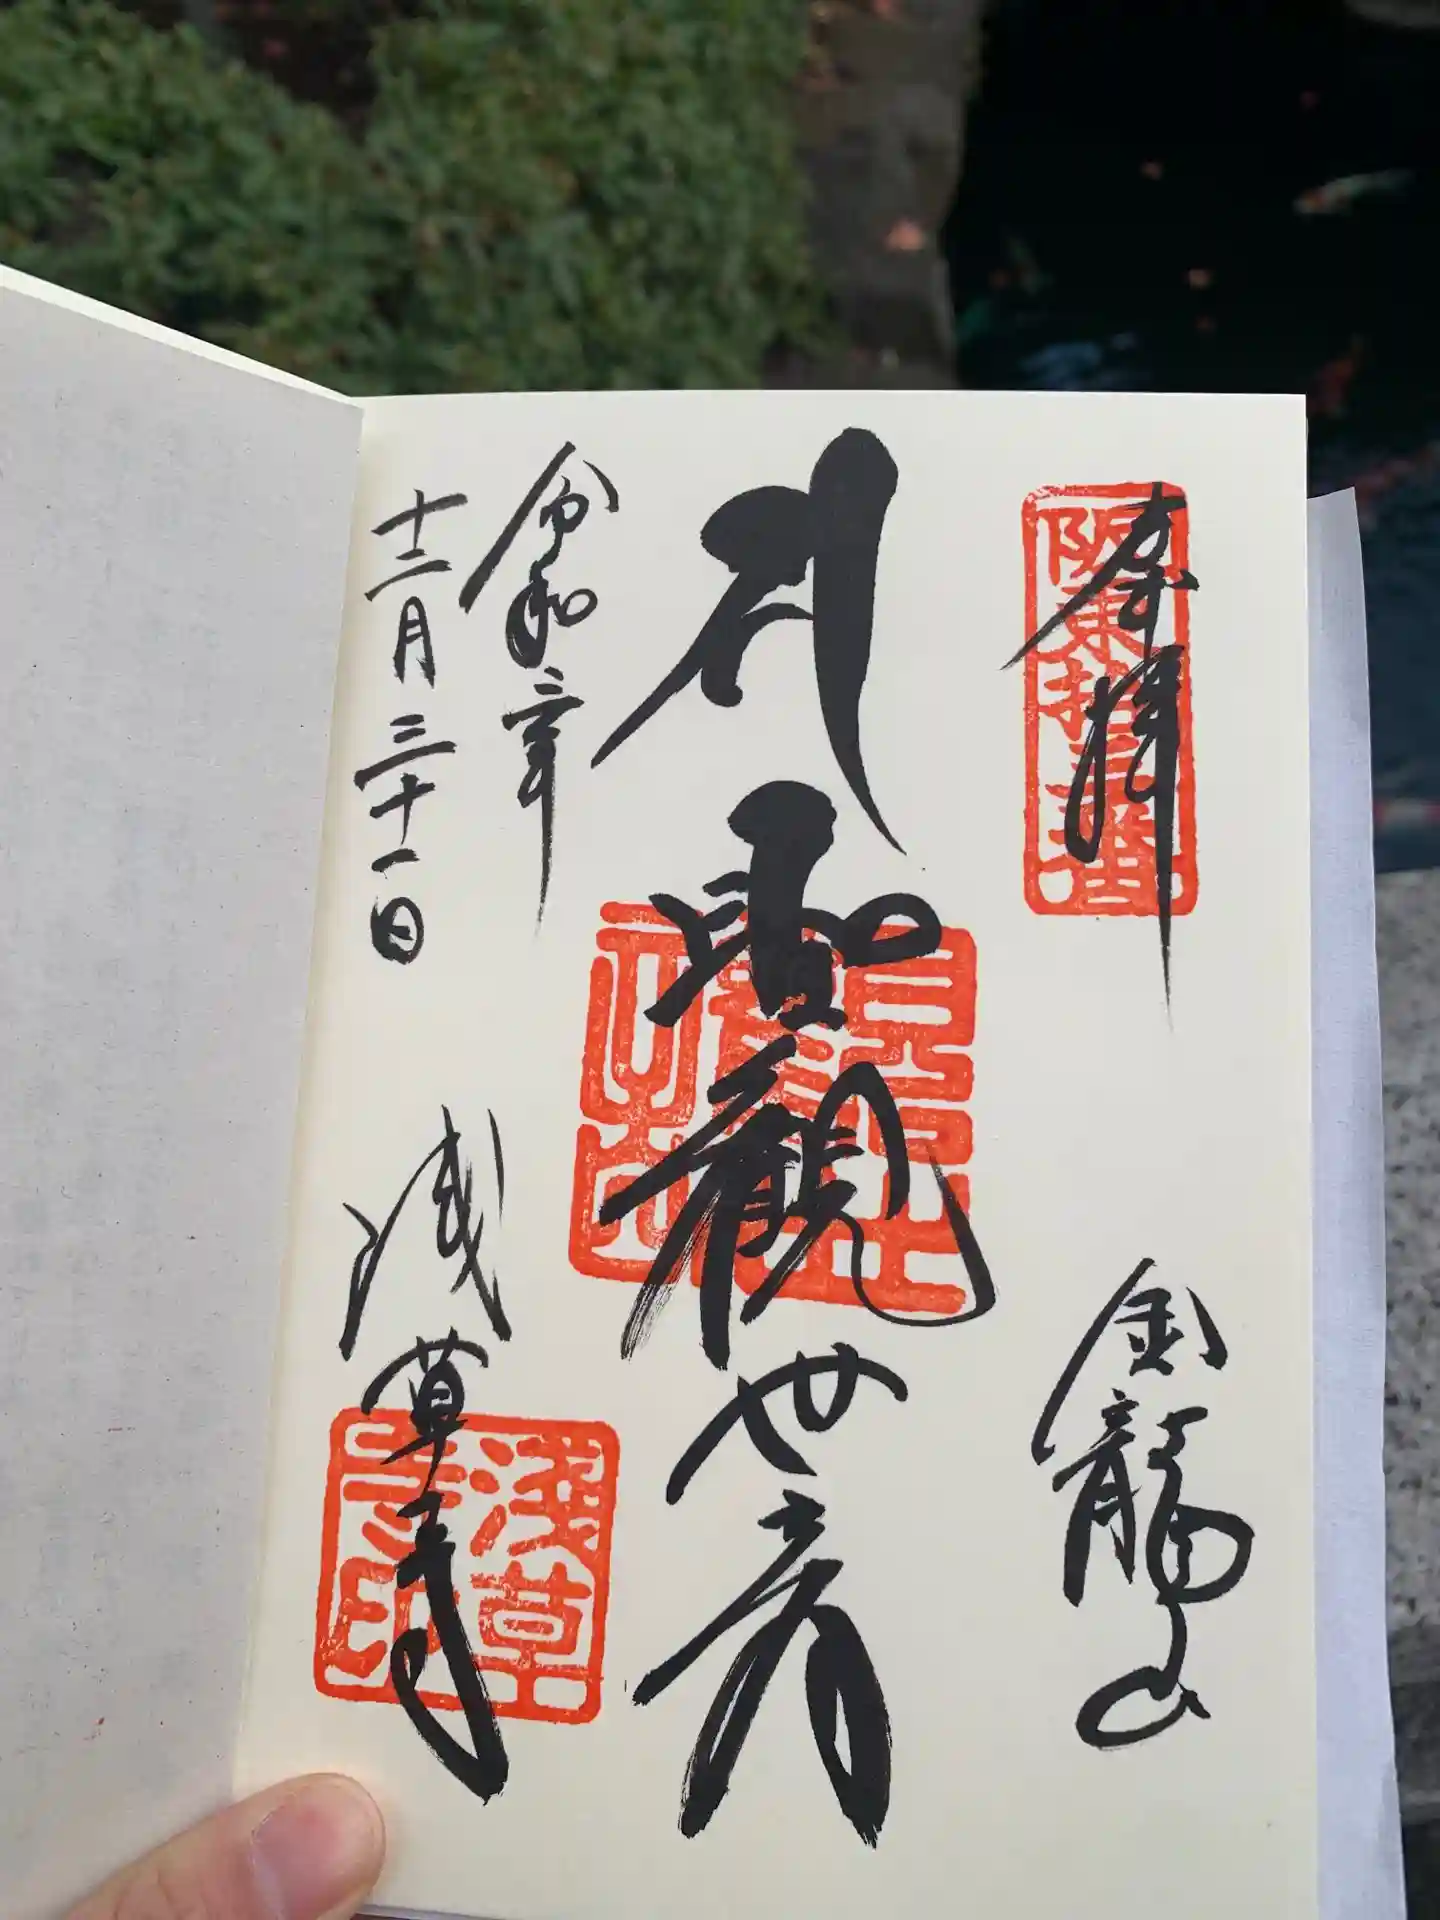 奉拝
阪東拾三番
金龍山
聖観世音
令和三年
十二月三十一日
浅草寺
浅草寺印